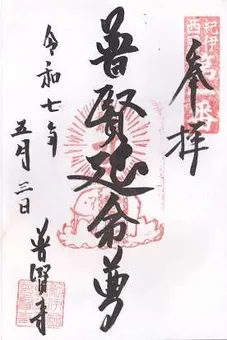 奉拝
紀伊
西国
番
普賢延命尊
令和七年
五月三日
普賢寺